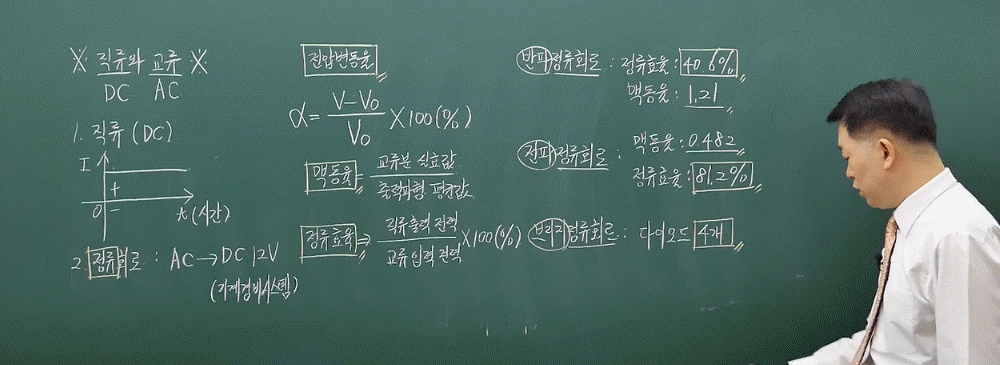 ※ 직류와 교류 ※
DC AC
1. 직류 (DC)
I
+
0 -
t (시간)
2. 정류회로 : AC → DC 12V
(기계경비시스템)
전압변동율
α = V-V₀ / V₀ × 100 (%)
맥동율 = 교류분 실효값 / 출력파형 평균값
정류효율 ⇒ 직류출력 전력 / 교류입력 전력 × 100 (%)
반파정류회로 : 정류효율 : 40.6%
맥동율 : 1.21
전파정류회로 : 맥동율 : 0.482
정류효율 : 81.2%
브리지정류회로 : 다이오드 4개